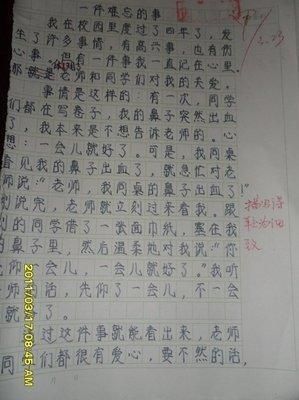 一件难忘的事
我在校园里度过了四年了，发
生了许多事情，有高兴事，也有伤
心事，但有一件事我一直记在心里，
那就是老师和同学们对我的关爱。
事情是这样的：有一次，同学
们都在写卷子，我的鼻子突然出血
了，我本来是不想告诉老师的。心
想：一会儿就好了。可是，我同桌
看见我的鼻子出血了，就急忙对老
师说：“老师，我同桌的鼻子出血了！”
刚说完，老师就立刻过来看我。跟
别的同学借了一张面巾纸，塞在我
的鼻子里，然后温柔地对我说：“你
先仰了一会儿，一会儿就好了。”我听
师的话，先仰了一会，不一会
就了。
过这件事就能看出来，老师
同们都很有爱心，要不然的话，
描写得
较为细
致
3.23
2011/03/17 08:45 AM